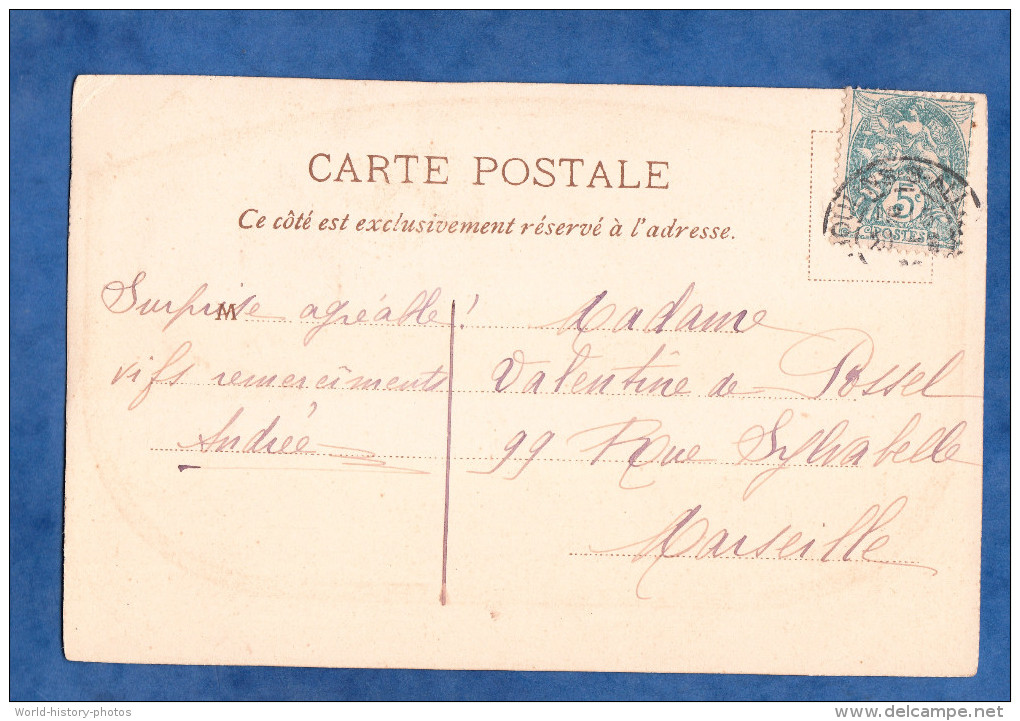 CARTE POSTALE
Ce côté est exclusivement réservé à l'adresse.
5c
POSTES
M
Surprise agréable!
vifs remerciments
Andrée
Madame
Valentine de Possel
99 Rue Sylvabelle
Marseille
World-history-photos
delcampe.net